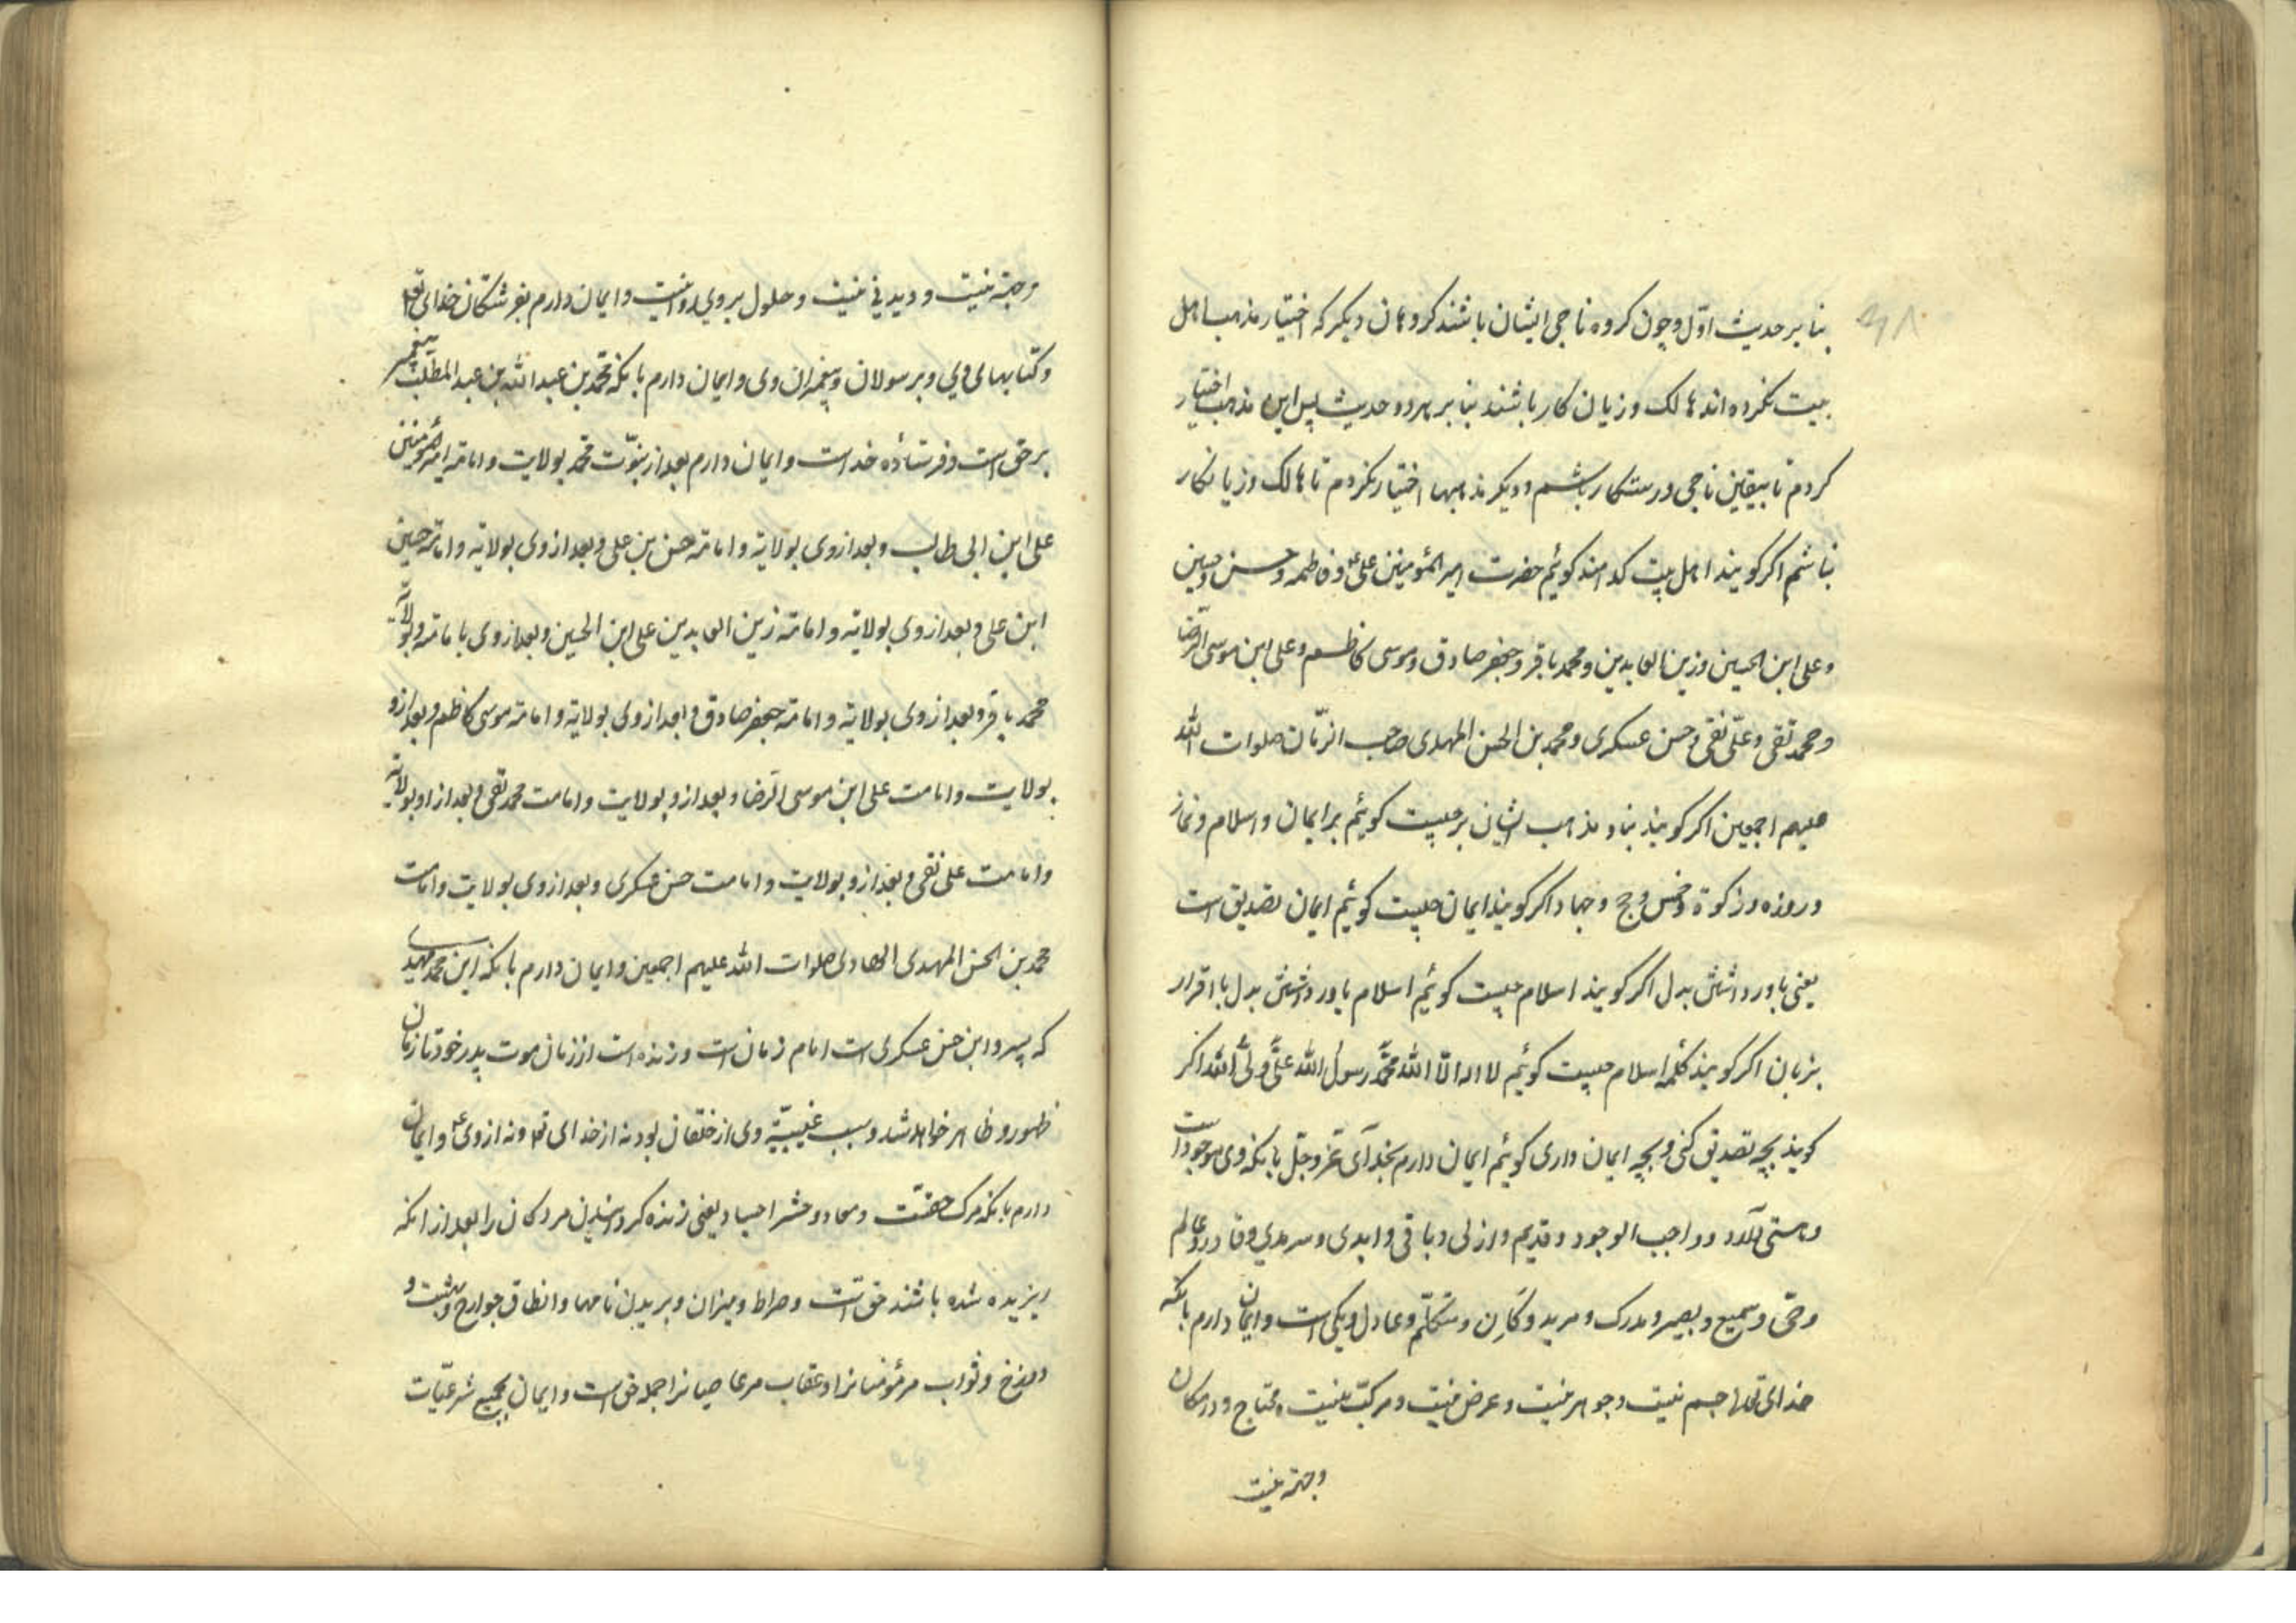 بنا بر حدیث اوّل وچون کروه ناجی ایشان باشند کروهان دیکر که اختیار مذهب اهل
بیت نکرده اند هالک وزیان کار باشند بنا بر هر دو حدیث پس این مذهب اختیار
کردم تا بیقین ناجی ورستکار باشم ودیکر مذهبها اختیار نکردم تا هالک وزیانکار
نباشم اکر کویند اهل بیت کدامند کوئیم حضرت امیر المؤمنین علی ع وفاطمه وحسن وحسین
وعلی ابن الحسین وزین العابدین ومحمد باقر وجعفر صادق وموسی کاظم وعلی ابن موسی الرّضا
ومحمد تقی وعلی نقی وحسن عسکری ومحمد بن الحسن المهدی صاحب الزّمان صلوات اللّه
علیهم اجمعین اکر کویند بناء مذهب ایشان بر چیست کوئیم بر ایمان واسلام ونماز
وروزه وزکوة وخمس وحج وجهاد اکر کویند ایمان چیست کوئیم ایمان تصدیق است
یعنی باور داشتن بدل اکر کویند اسلام چیست کوئیم اسلام باور داشتن بدل با اقرار
بزبان اکر کویند کلمه اسلام چیست کوئیم لا اله الّا اللّه محمّد رسول اللّه علیّ ولیّ اللّه اکر
کویند بچه تصدیق کنی وبچه ایمان داری کوئیم ایمان دارم بخدای عزّ وجلّ بآنکه وی موجود است
وهستی دارد وواجب الوجود وقدیم وازلی وباقی وابدی وسرمدی وقادر وعالم
وحیّ وسمیع وبصیر ومدرک ومرید وکاره ومتکلّم وعادل ویکی است وایمان دارم بانکه
خدای تعالی جسم نیست وجوهر نیست وعرض نیست ومرکّب نیست ومحتاج ودر مکان
وجهة نیست
وجهة نیست ودیدنی نیست وحلول بر وی روا نیست وایمان دارم بفرشتکان خدای تعالی
وکتابهای وی وبر سولان وپیغمبران وی وایمان دارم بانکه محمّد بن عبد اللّه بن عبد المطلب پیغمبر
بر حق است وفرستاده خداست وایمان دارم بعد از نبوّت محمّد بولایت وامامة امیر المؤمنین
علی ابن ابی طالب وبعد از وی بولایة وامامة حسن بن علی وبعد از وی بولایة وامامة حسین
ابن علی وبعد از وی بولایة وامامة زین العابدین علی ابن الحسین وبعد از وی بامامة وبولایة
محمّد باقر وبعد از وی بولایة وامامة جعفر صادق وبعد از وی بولایة وامامة موسی کاظم وبعد از و
بولایت وامامت علی ابن موسی الرّضا وبعد از و بولایت وامامت محمد تقی وبعد از او بولایة
وامامت علی نقی وبعد از و بولایت وامامت حسن عسکری وبعد از وی بولایت وامامت
محمد بن الحسن المهدی الهادی صلوات اللّه علیهم اجمعین وایمان دارم بانکه این محمد مهدی
که پسر و ابن حسن عسکری است امام زمان است وزنده است از زمان موت پدر خود تا زمان
ظهور وظاهر خواهد شد وسبب غیبة وی از خلقان بود نه از خدای تعالی ونه از وی ع وایمان
دارم بانکه مرک حقست ومعاد وحشر اجساد یعنی زنده کردانیدن مردکان را بعد از انکه
ریزیده شده باشند حق است وصراط ومیزان وپریدن نامها وانطاق جوارح وبهشت و
دوزخ وثواب مر مؤمنانرا وعقاب مر عاصیانرا جمله حق است وایمان بجمیع شرعیّات